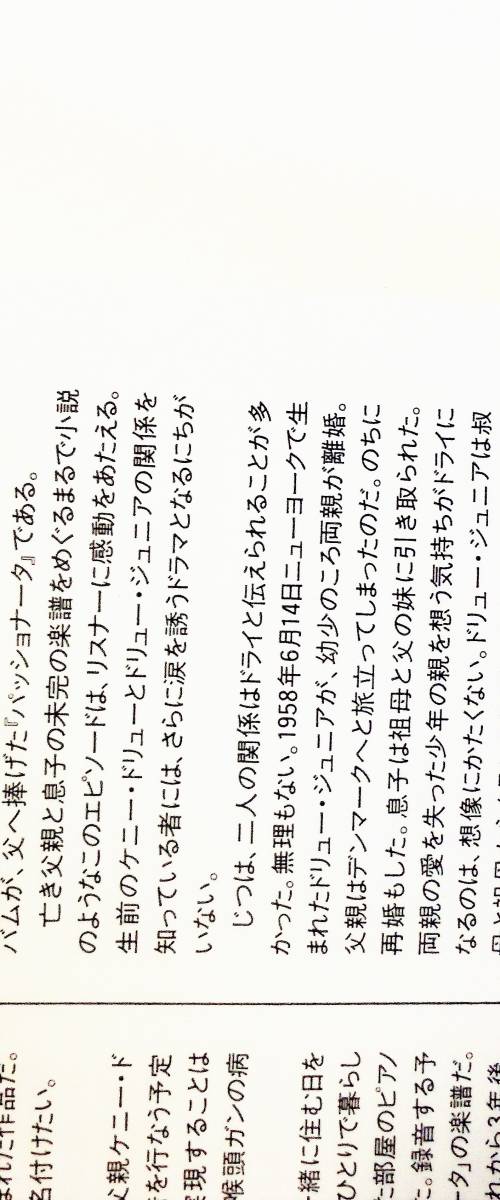 バムが、父へ捧げた『パッショナータ』である。
亡き父親と息子の未完の楽譜をめぐるまるで小説
のようなこのエピソードは、リスナーに感動をあたえる。
生前のケニー・ドリューとドリュー・ジュニアの関係を
知っている者には、さらに涙を誘うドラマとなるにちが
いない。
じつは、二人の関係はドライと伝えられることが多
かった。無理もない。1958年6月14日ニューヨークで生
まれたドリュー・ジュニアが、幼少のころ両親が離婚。
父親はデンマークへと旅立ってしまったのだ。のちに
再婚もした。息子は祖母と父の妹に引き取られた。
両親の愛を失った少年の親を想う気持ちがドライに
なるのは、想像にかたくない。ドリュー・ジュニアは叔
まれた作品だ。
名付けたい。
父親ケニー・ド
を行なう予定
実現することは
喉頭ガンの病
緒に住む日を
ひとりで暮らし
た部屋のピアノ
た。録音する予
タ」の楽譜だ。
れから3年後